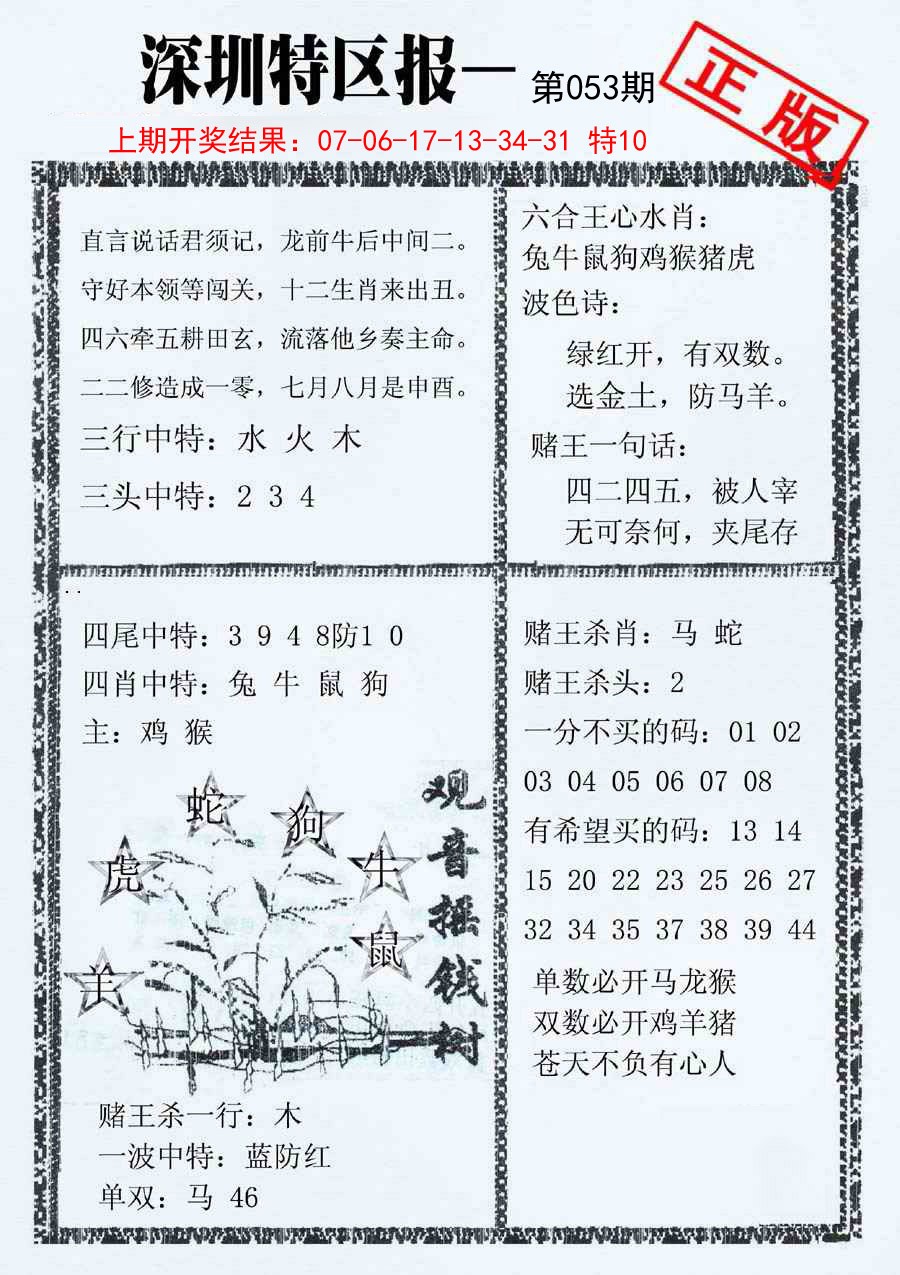 深圳特区报—
第053期
正版
上期开奖结果：07-06-17-13-34-31 特10
直言说话君须记，龙前牛后中间二。
守好本领等闯关，十二生肖来出丑。
四六牵五耕田玄，流落他乡奏主命。
二二修造成一零，七月八月是申酉。
三行中特：水 火 木
三头中特：2 3 4
六合王心水肖：
兔牛鼠狗鸡猴猪虎
波色诗：
绿红开，有双数。
选金土，防马羊。
赌王一句话：
四二四五，被人宰
无可奈何，夹尾存
四尾中特：3 9 4 8防1 0
四肖中特：兔 牛 鼠 狗
主：鸡 猴
蛇
狗
虎
牛
鼠
羊
观音摇钱树
赌王杀一行：木
一波中特：蓝防红
单双：马 46
赌王杀肖：马 蛇
赌王杀头：2
一分不买的码：01 02
03 04 05 06 07 08
有希望买的码：13 14
15 20 22 23 25 26 27
32 34 35 37 38 39 44
单数必开马龙猴
双数必开鸡羊猪
苍天不负有心人